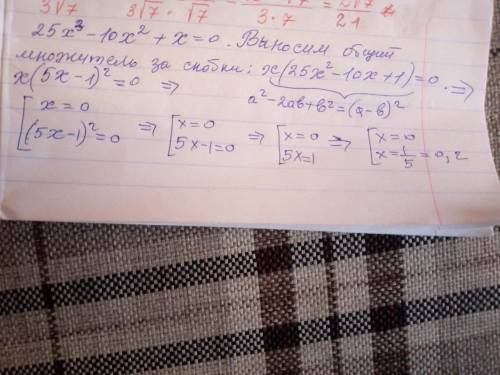 3√7 3√7 · √7 3 · 7 = 2√7 21
25x³ - 10x² + x = 0. Выносим общий
множитель за скобки: x(25x² - 10x + 1) = 0. ⇒
x(5x - 1)² = 0 ⇒ a² - 2ab + b² = (a - b)²
[x = 0 (5x - 1)² = 0 ⇒ [x = 0 5x - 1 = 0 ⇒ [x = 0 5x = 1 ⇒ [x = 0 x = 1/5 = 0,2